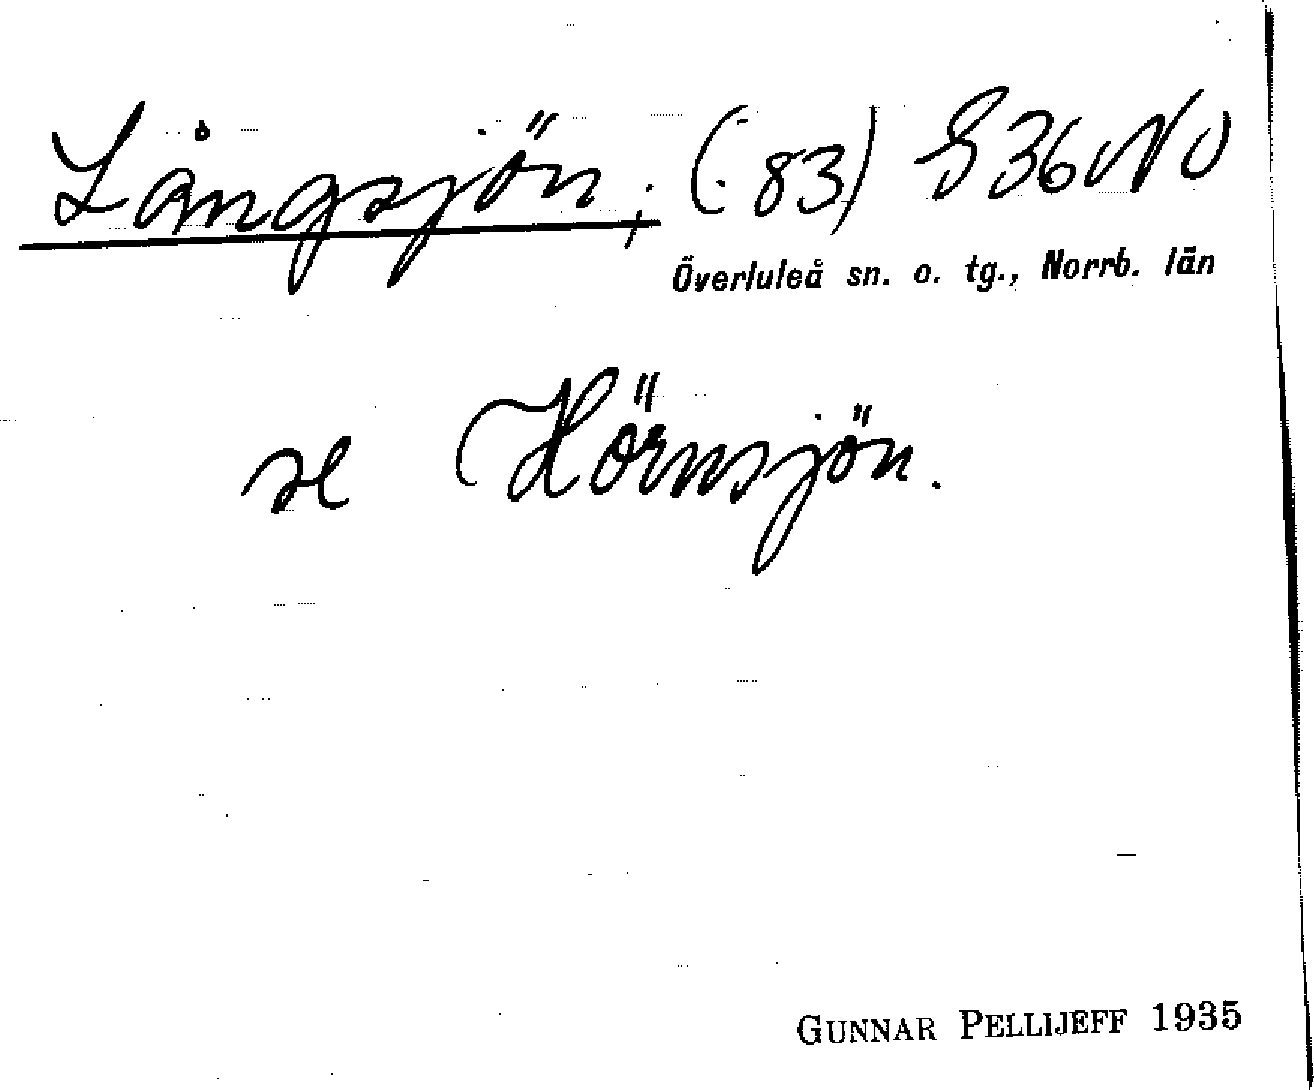 Långsjön; (:83) S36NV
Överluleå sn. o. tg., Norrb. län
se Hörnsjön.
GUNNAR PELLIJEFF 1935